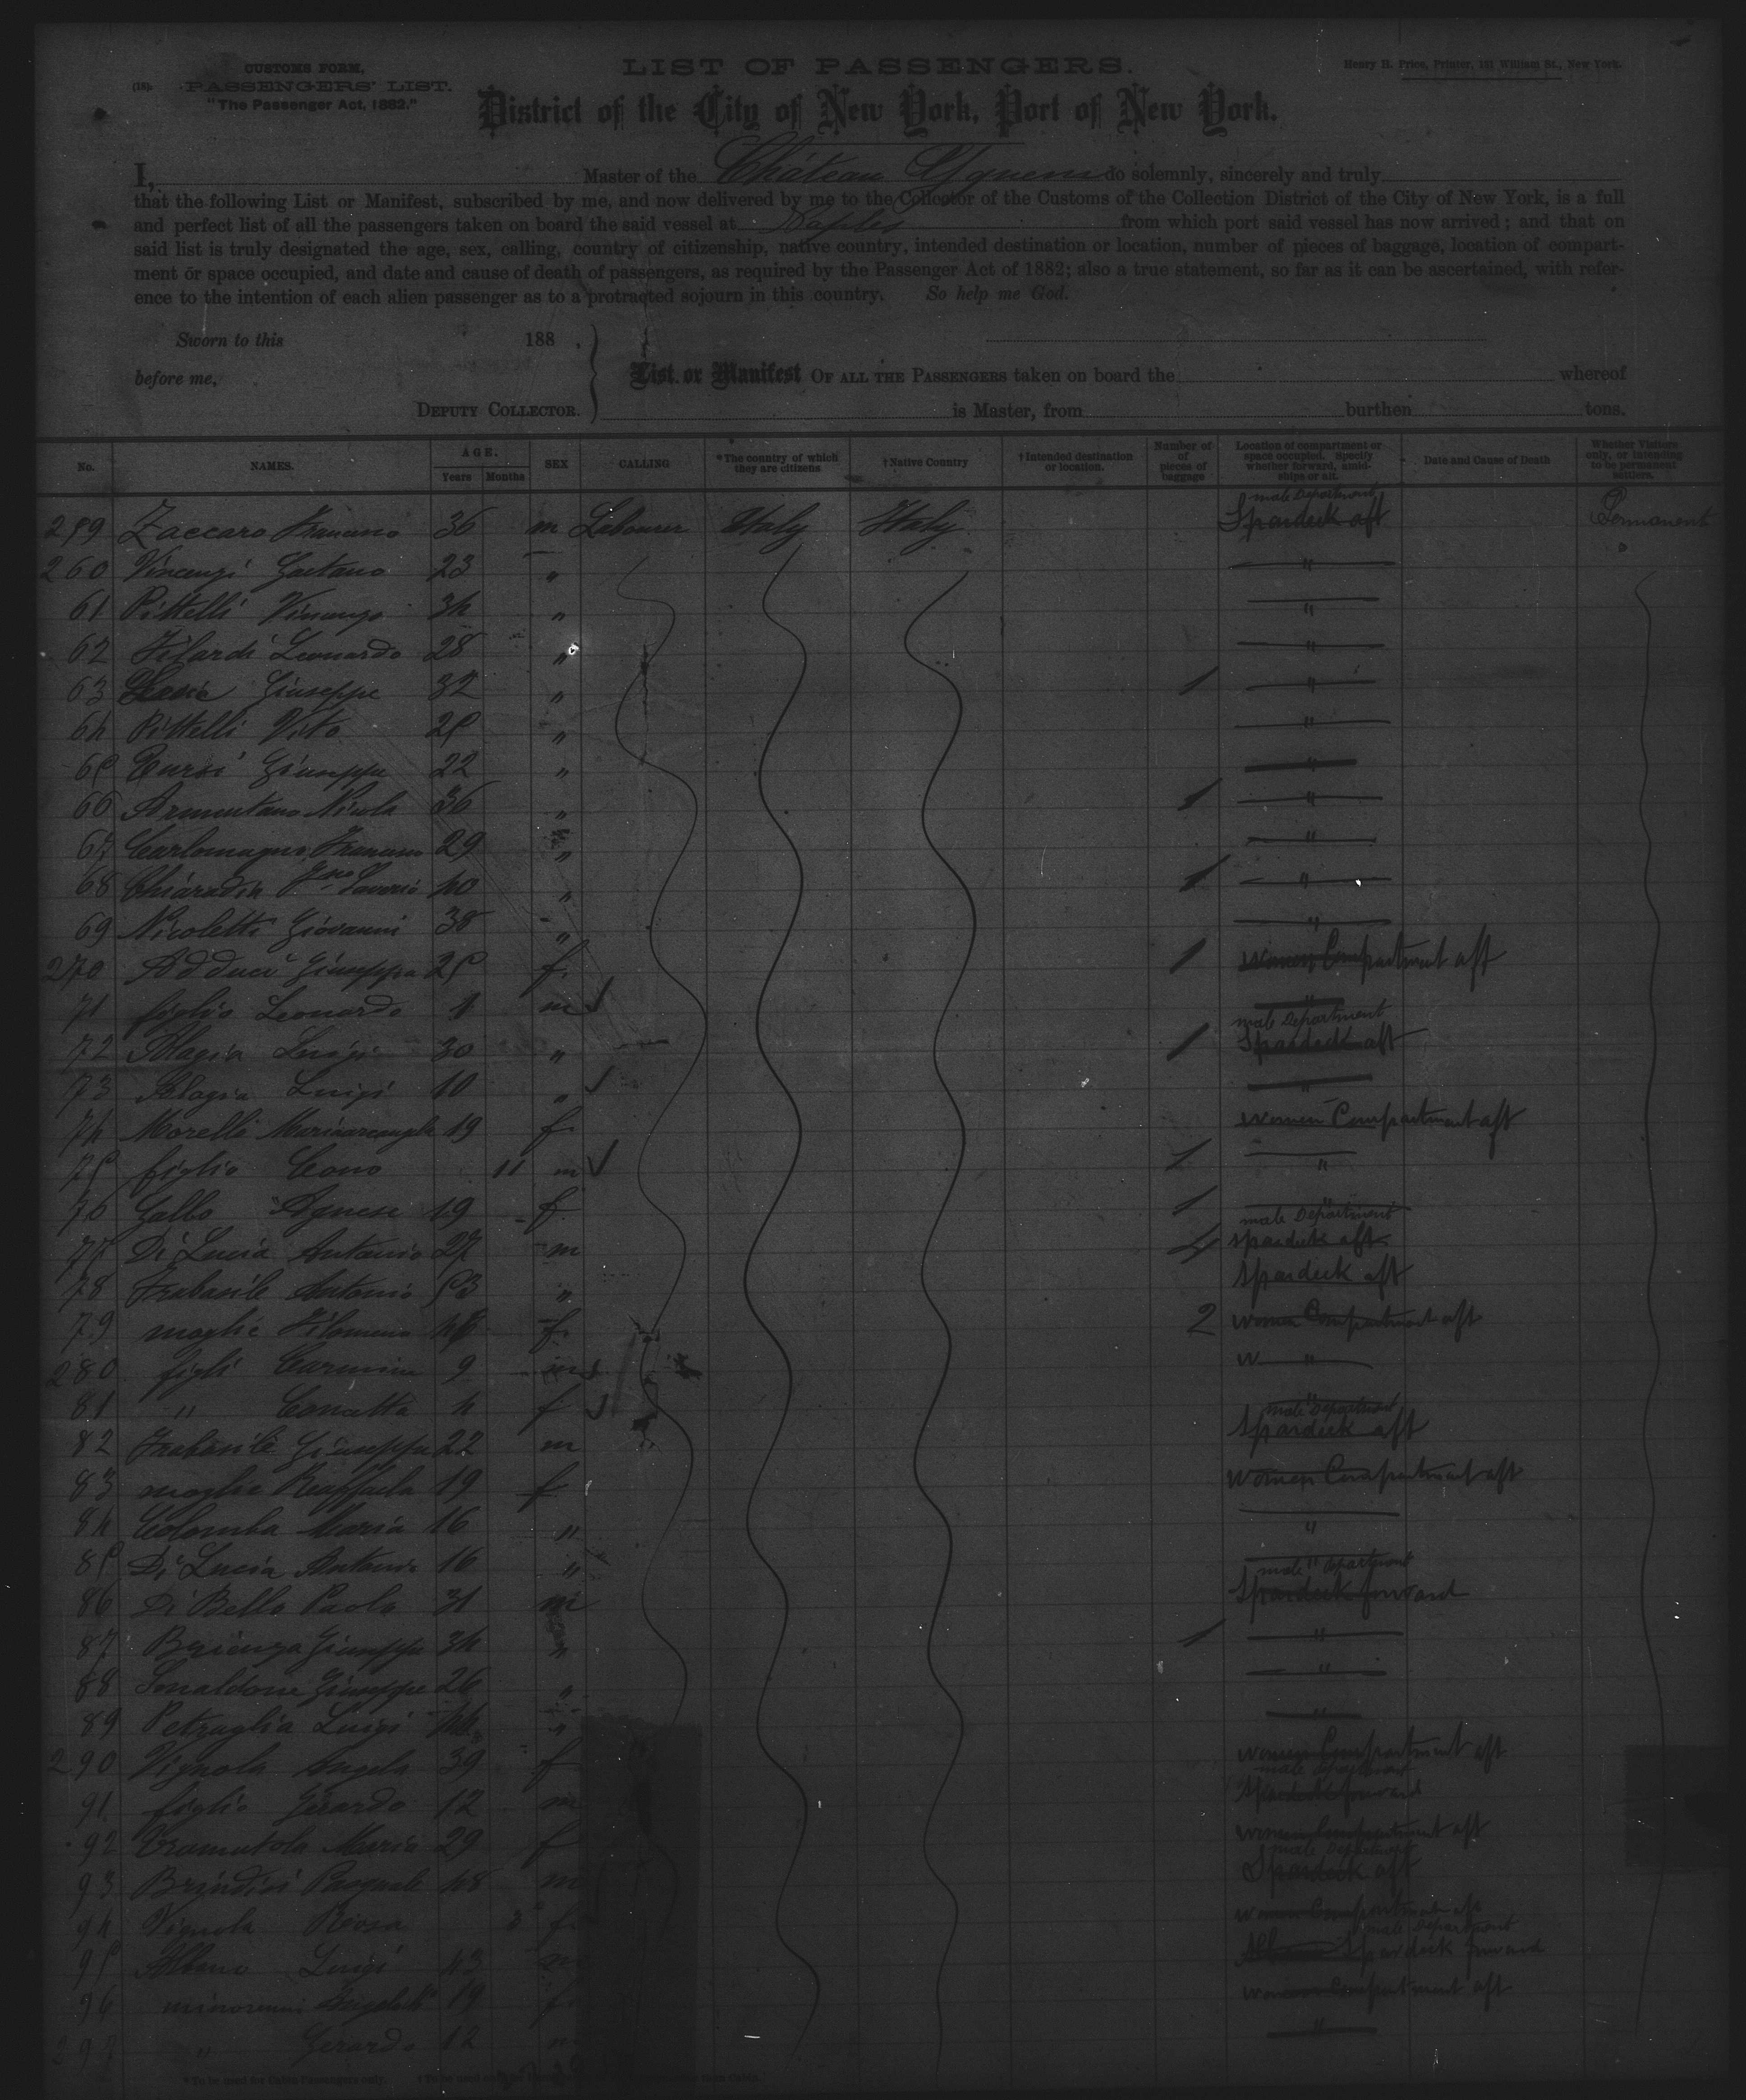 CUSTOMS FORM.
PASSENGERS' LIST.
"The Passenger Act, 1882."
LIST OF PASSENGERS.
Henry H. Price, Printer, 151 William St., New York.
District of the City of New York, Port of New York.
I, Master of the Château Yquem do solemnly, sincerely and truly
that the following List or Manifest, subscribed by me, and now delivered by me to the Collector of the Customs of the Collection District of the City of New York, is a full
and perfect list of all the passengers taken on board the said vessel at Naples from which port said vessel has now arrived; and that on
said list is truly designated the age, sex, calling, country of citizenship, native country, intended destination or location, number of pieces of baggage, location of compart-
ment or space occupied, and date and cause of death of passengers, as required by the Passenger Act of 1882; also a true statement, so far as it can be ascertained, with refer-
ence to the intention of each alien passenger as to a protracted sojourn in this country. So help me God.
Sworn to this 188 ,
before me,
DEPUTY COLLECTOR.
List or Manifest OF ALL THE PASSENGERS taken on board the whereof
is Master, from burthen tons.
No. NAMES. AGE. Years Months SEX CALLING *The country of which they are citizens †Native Country †Intended destination or location. Number of of pieces of baggage Location of compartment or space occupied. Specify whether forward, amid-ships or aft. Date and Cause of Death Whether Visitors only, or intending to be permanent settlers.
259 Zaccaro 36 m Labourer Italy Italy male Department Spardeck aft Permanent
260 Vincenzi Gaetano 23 " "
61 Pittelli Vincenzo 34 " "
62 Filardi Leonardo 28 " "
63 Giuseppe 32 " 1 "
64 Pittelli Vito 25 " "
65 Cursi Giuseppe 22 " "
66 Armentano Nicola 36 " 1 "
67 Carlomagno 29 " "
68 Chiaradia Saverio 40 " 1 "
69 Nicoletti Giovanni 38 " "
270 Adduci Giuseppa 25 f. 1 women Compartment aft
71 figlio Leonardo 1 m "
72 Luigi 30 " 1 male Department Spardeck aft
73 Luigi 10 " "
74 Morelli Mariarcangela 19 f. women Compartment aft
75 figlio Cono 11 m 1 "
76 Gallo Agnese 19 f 1 "
77 Di Lucia Antonio 27 m male Department spardeck aft
78 Trabasile Antonio 53 " Spardeck aft
79 moglie Filomena f. 2 women Compartment aft
280 figli Carmine 9 "
81 " Concetta 4 f "
82 Trabasile Giuseppe 22 m male Department Spardeck aft
83 moglie Raffaela 19 f women Compartment aft
84 Colomba Maria 16 " "
85 Di Lucia Antonia 16 " "
86 Di Bello Paolo 31 m male department Spardeck forward
87 Brienza Giuseppe 34 " 1 "
88 Smaldone Giuseppe 26 " "
89 Petruglia Luigi " "
290 Vignola Angela 39 f women Compartment aft
91 figlio Gerardo 12 m male department Spardeck forward
92 Cramutola Maria 29 f women Compartment aft
93 Brindisi Pasquale 48 m male Department Spardeck aft
94 Vignola Rosa f. women Compartment aft
95 Albano Luigi 43 m male Department Spardeck forward
96 19 f women Compartment aft
297 " Gerardo 12 m "